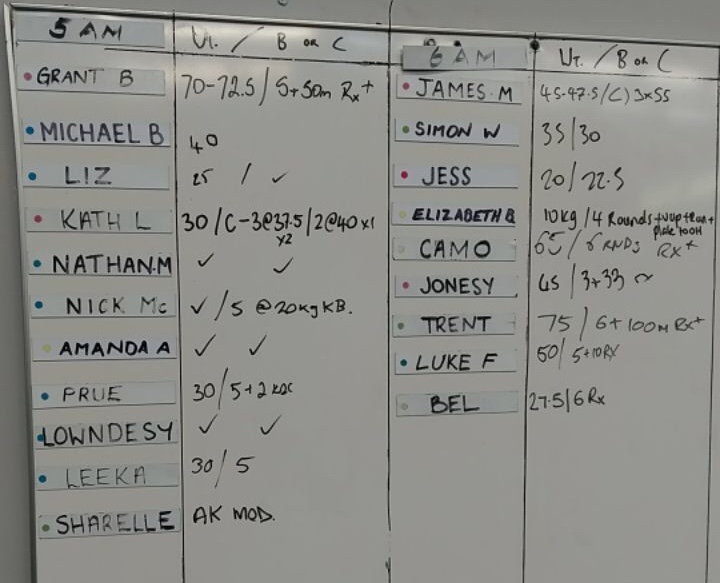 5 AM WT. / B OR C
GRANT B 70-72.5 / 5+50m Rx+
MICHAEL B 40
LIZ 25 / ✓
KATH L 30 / C-3@37.5 / 2@40 x1
x2
NATHAN.M ✓ ✓
NICK Mc ✓ / 5 @20kg KB.
AMANDA A ✓ ✓
PRUE 30 / 5+2
LOWNDESY ✓ ✓
LEEKA 30 / 5
SHARELLE AK MOD.
6 AM WT. / B OR C
JAMES.M 45-47.5 / C) 3x55
SIMON W 35 / 30
JESS 20 / 22.5
ELIZABETH B 10kg / 4 Rounds
CAMO 65 / 6 RNDS Rx+
JONESY 45 / 3+33
TRENT 75 / 6+100m Rx+
LUKE F 50 / 5+10 RX
BEL 27.5 / 6 Rx